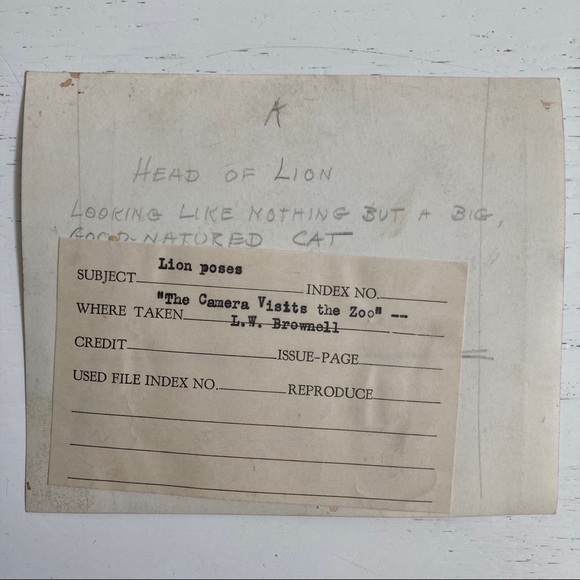 K
HEAD OF LION
LOOKING LIKE NOTHING BUT A BIG,
GOOD-NATURED CAT
Lion poses
SUBJECT INDEX NO.
"The Camera Visits the Zoo" --
WHERE TAKEN
L.W. Brownell
CREDIT ISSUE-PAGE
USED FILE INDEX NO. REPRODUCE